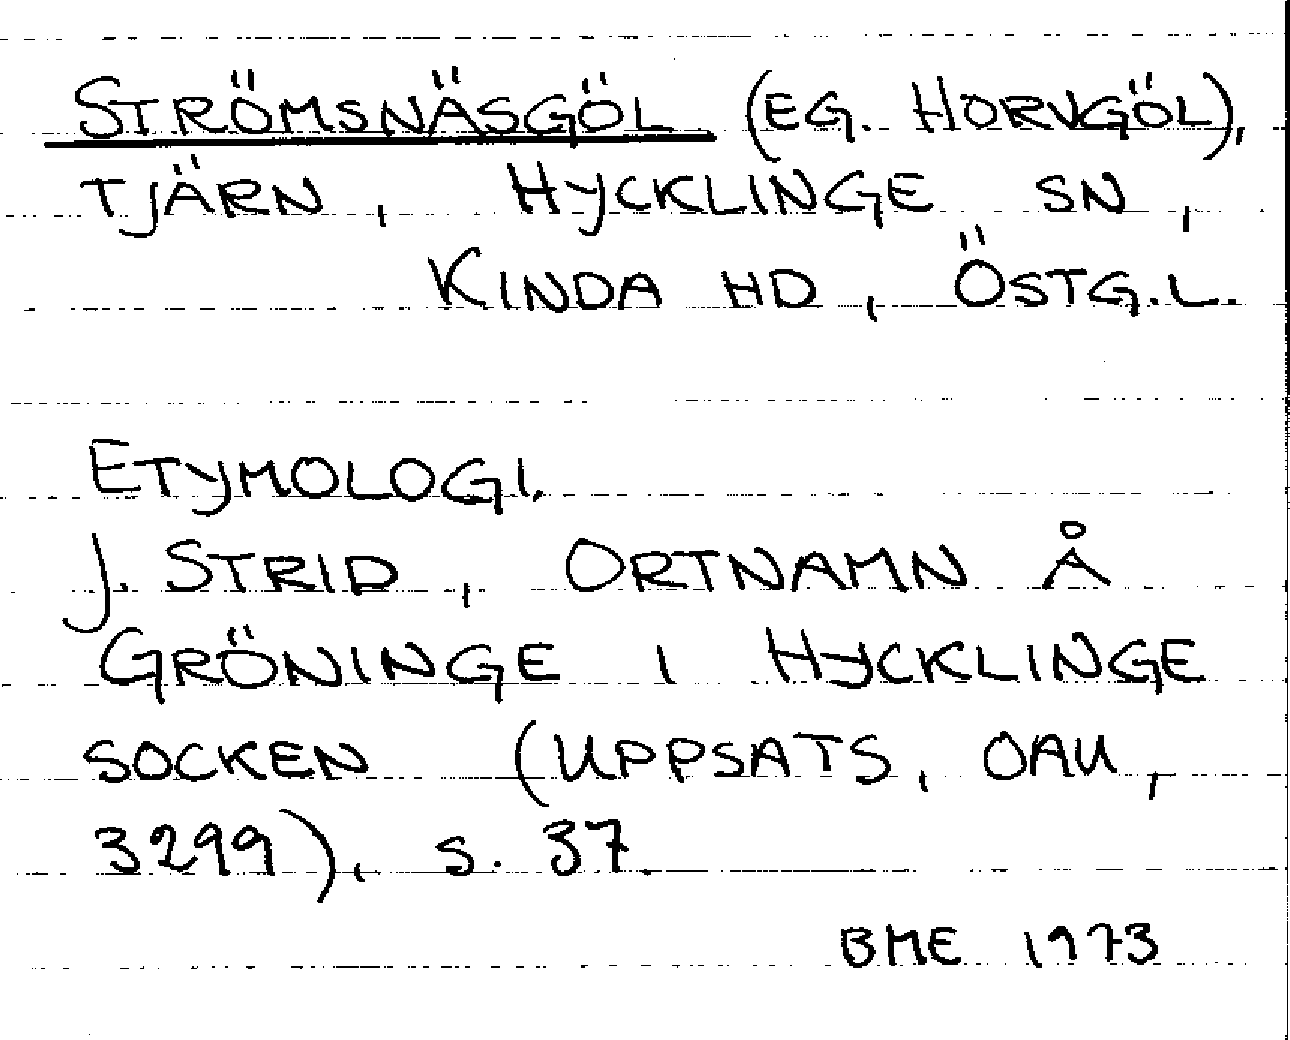 STRÖMSNÄSGÖL (EG. HORVGÖL),
TJÄRN, HYCKLINGE SN,
KINDA HD, ÖSTG.L.
ETYMOLOGI.
J. STRID, ORTNAMN Å
GRÖNINGE I HYCKLINGE
SOCKEN (UPPSATS, OAU,
3299), S. 37.
BME 1973